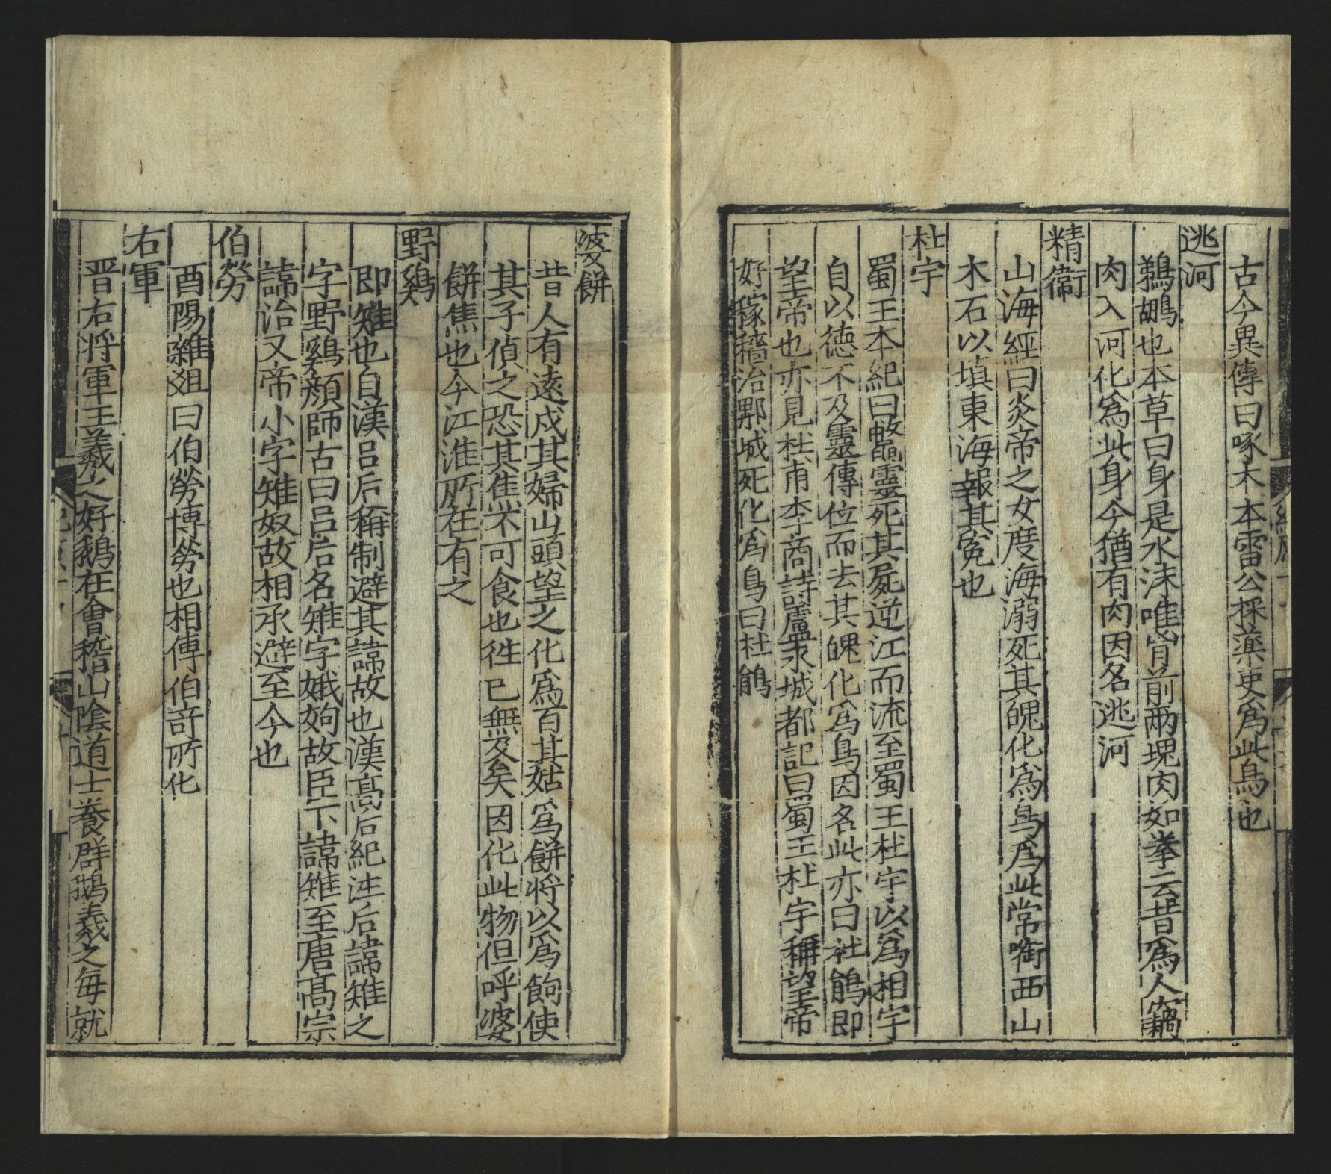 古今異傳曰啄木本雷公採藥吏爲此鳥也
逃河
鵜鶘也本草曰身是水沫唯胷前兩塊肉如拳云昔爲人竊
肉入河化爲此身今猶有肉因名逃河
精衞
山海經曰炎帝之女度海溺死其魄化爲鳥爲此常㘅西山
木石以填東海報其寃也
杜宇
蜀王本紀曰鼈靈死其屍逆江而流至蜀王杜宇以爲相宇
自以德不及靈傳位而去其魄化爲鳥因名此亦曰杜鵑即
望帝也亦見杜甫李商詩蘆求城都記曰蜀王杜宇稱望帝
好稼穡治郫城死化爲鳥曰杜鵑
婆餅
昔人有遠戍其婦山頭望之化爲百其姑爲餅將以爲餉使
其子偵之恐其焦不可食也徃已無及矣因化此物但呼婆
餅焦也今江淮所在有之
野鷄
即雉也自漢呂后稱制避其諱故也漢髙后紀注后諱雉之
字野鷄顔師古曰呂后名雉字娥姁故臣下諱雉至唐髙宗
諱治又帝小字雉奴故相承避至今也
伯勞
酉陽雜爼曰伯勞博勞也相傳伯竒所化
右軍
晋右将軍王羲之好鵝在會稽山陰道士養群鵝羲之每就